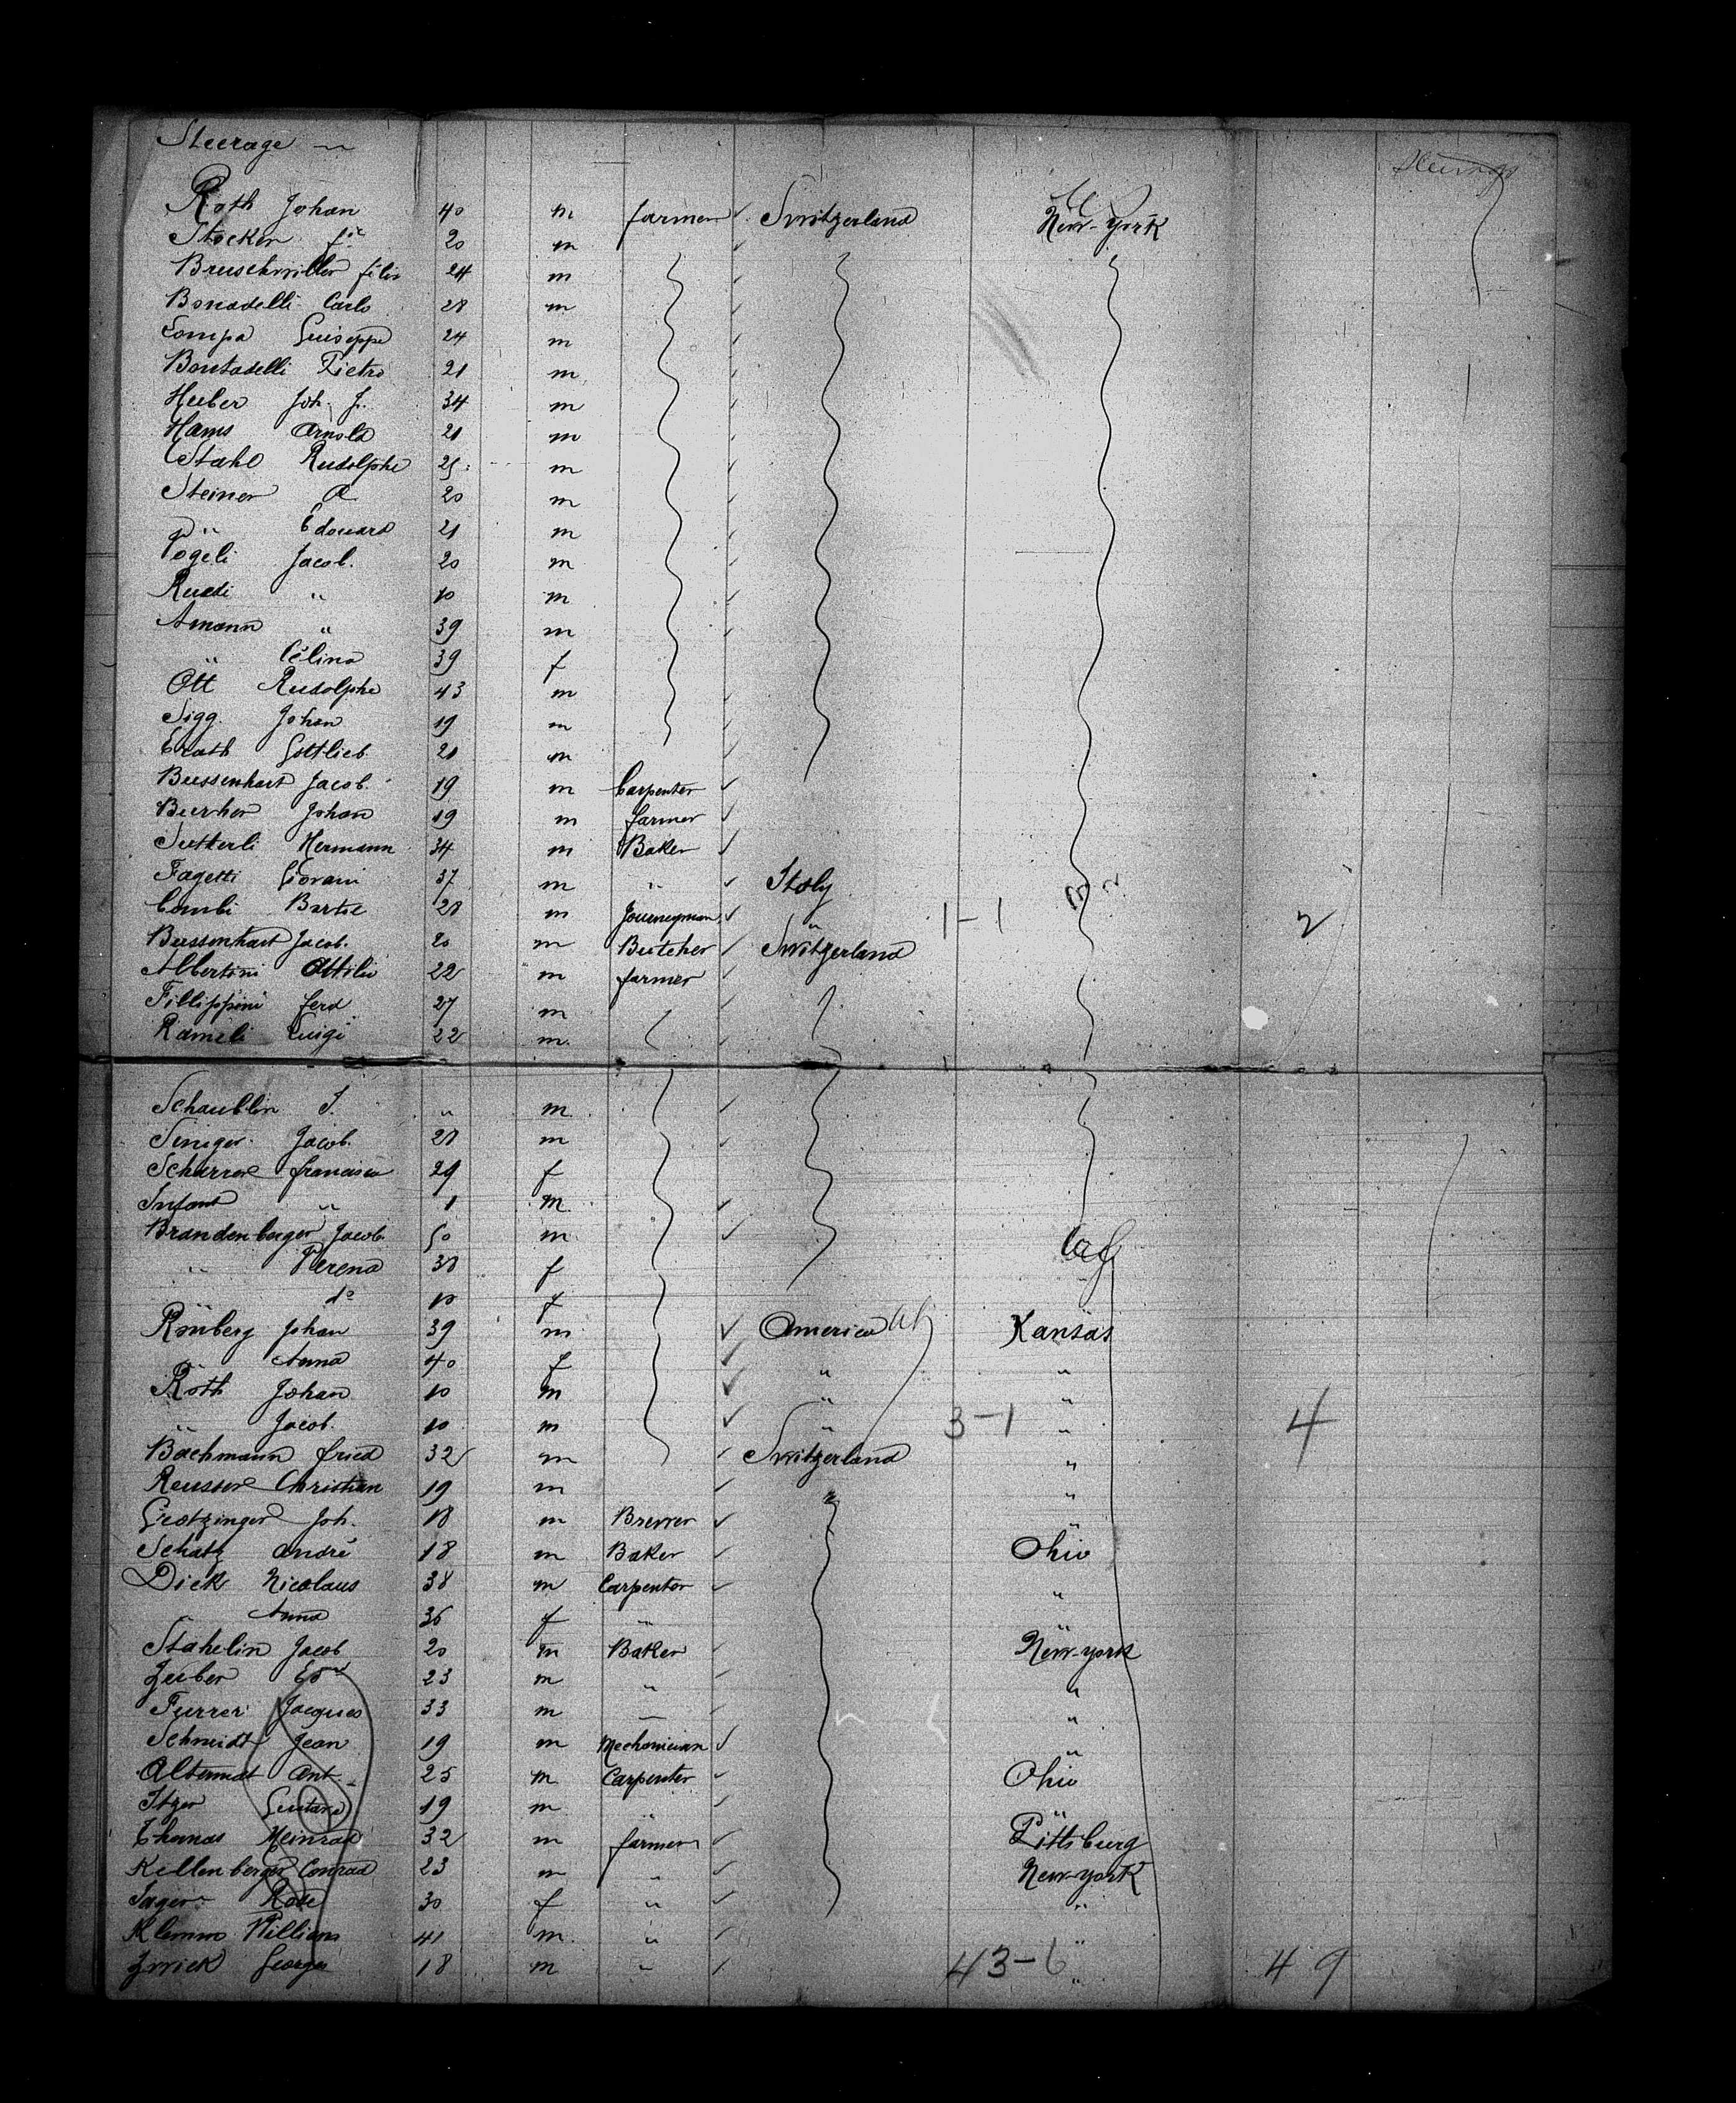 Steerage
Steerage
Roth Johan 40 m farmer Switzerland New-York
Stocker 20 m
Bruschwiller félix 24 m
Bonadelli Carlo 28 m
Compa Guiseppe 24 m
Bontadelli Pietro 21 m
Huber Joh. J. 34 m
Hams Arnold 21 m
Stahl Rudolphe 25 m
Steiner A 20 m
" Edouard 21 m
Vogeli Jacob. 20 m
Ruedi " 10 m
Amann " 39 m
" Célina 39 f
Ott Rudolphe 43 m
Sigg. Johan 19 m
Erath Gottlieb 21 m
Bussenhart Jacob. 19 m Carpenter
Burher Johan 19 m farmer
Sutterli Hermann 34 m Baker
Fagetti Giovani 37 m " Italy
Combi Bartol 28 m Journeyman " 1-1 2
Bussenhart Jacob. 20 m Butcher Switzerland
Albertini Attilio 22 m farmer
Fillippini ferd 27 m
Rameli Luigi 22 m
Schaublin J. " m
Siniger Jacob. 28 m
Scharrer francisca 29 f
Infant " 1 m
Brandenberger Jacob 50 m
" Verena 38 f
do 10 f
Römberg Johan 39 m America Kansas
" Anna 40 f " "
Roth Johan 10 m " "
" Jacob. 10 m " 3-1 " 4
Bachmann fried 32 m Switzerland "
Reusser Christian 19 m "
Grotzinger Joh. 18 m Brewer "
Schatz André 18 m Baker Ohio
Dick Nicolaus 38 m Carpenter "
Anna 36 f " "
Stahelin Jacob 20 m Baker New-york
Zuber Ed 23 m " "
Furrer Jacques 33 m " "
Schmidt Jean 19 m Mechanician "
Altermatt Ant. 25 m Carpenter Ohio
Itger Gustave 19 m " "
Thomas Meinrad 32 m farmer Pittsburg
Kellenberger Conrad 23 m " New-york
Jager Rose 30 f " "
Klemm William 41 m " "
Zwick Georges 18 m " 43-6 " 49